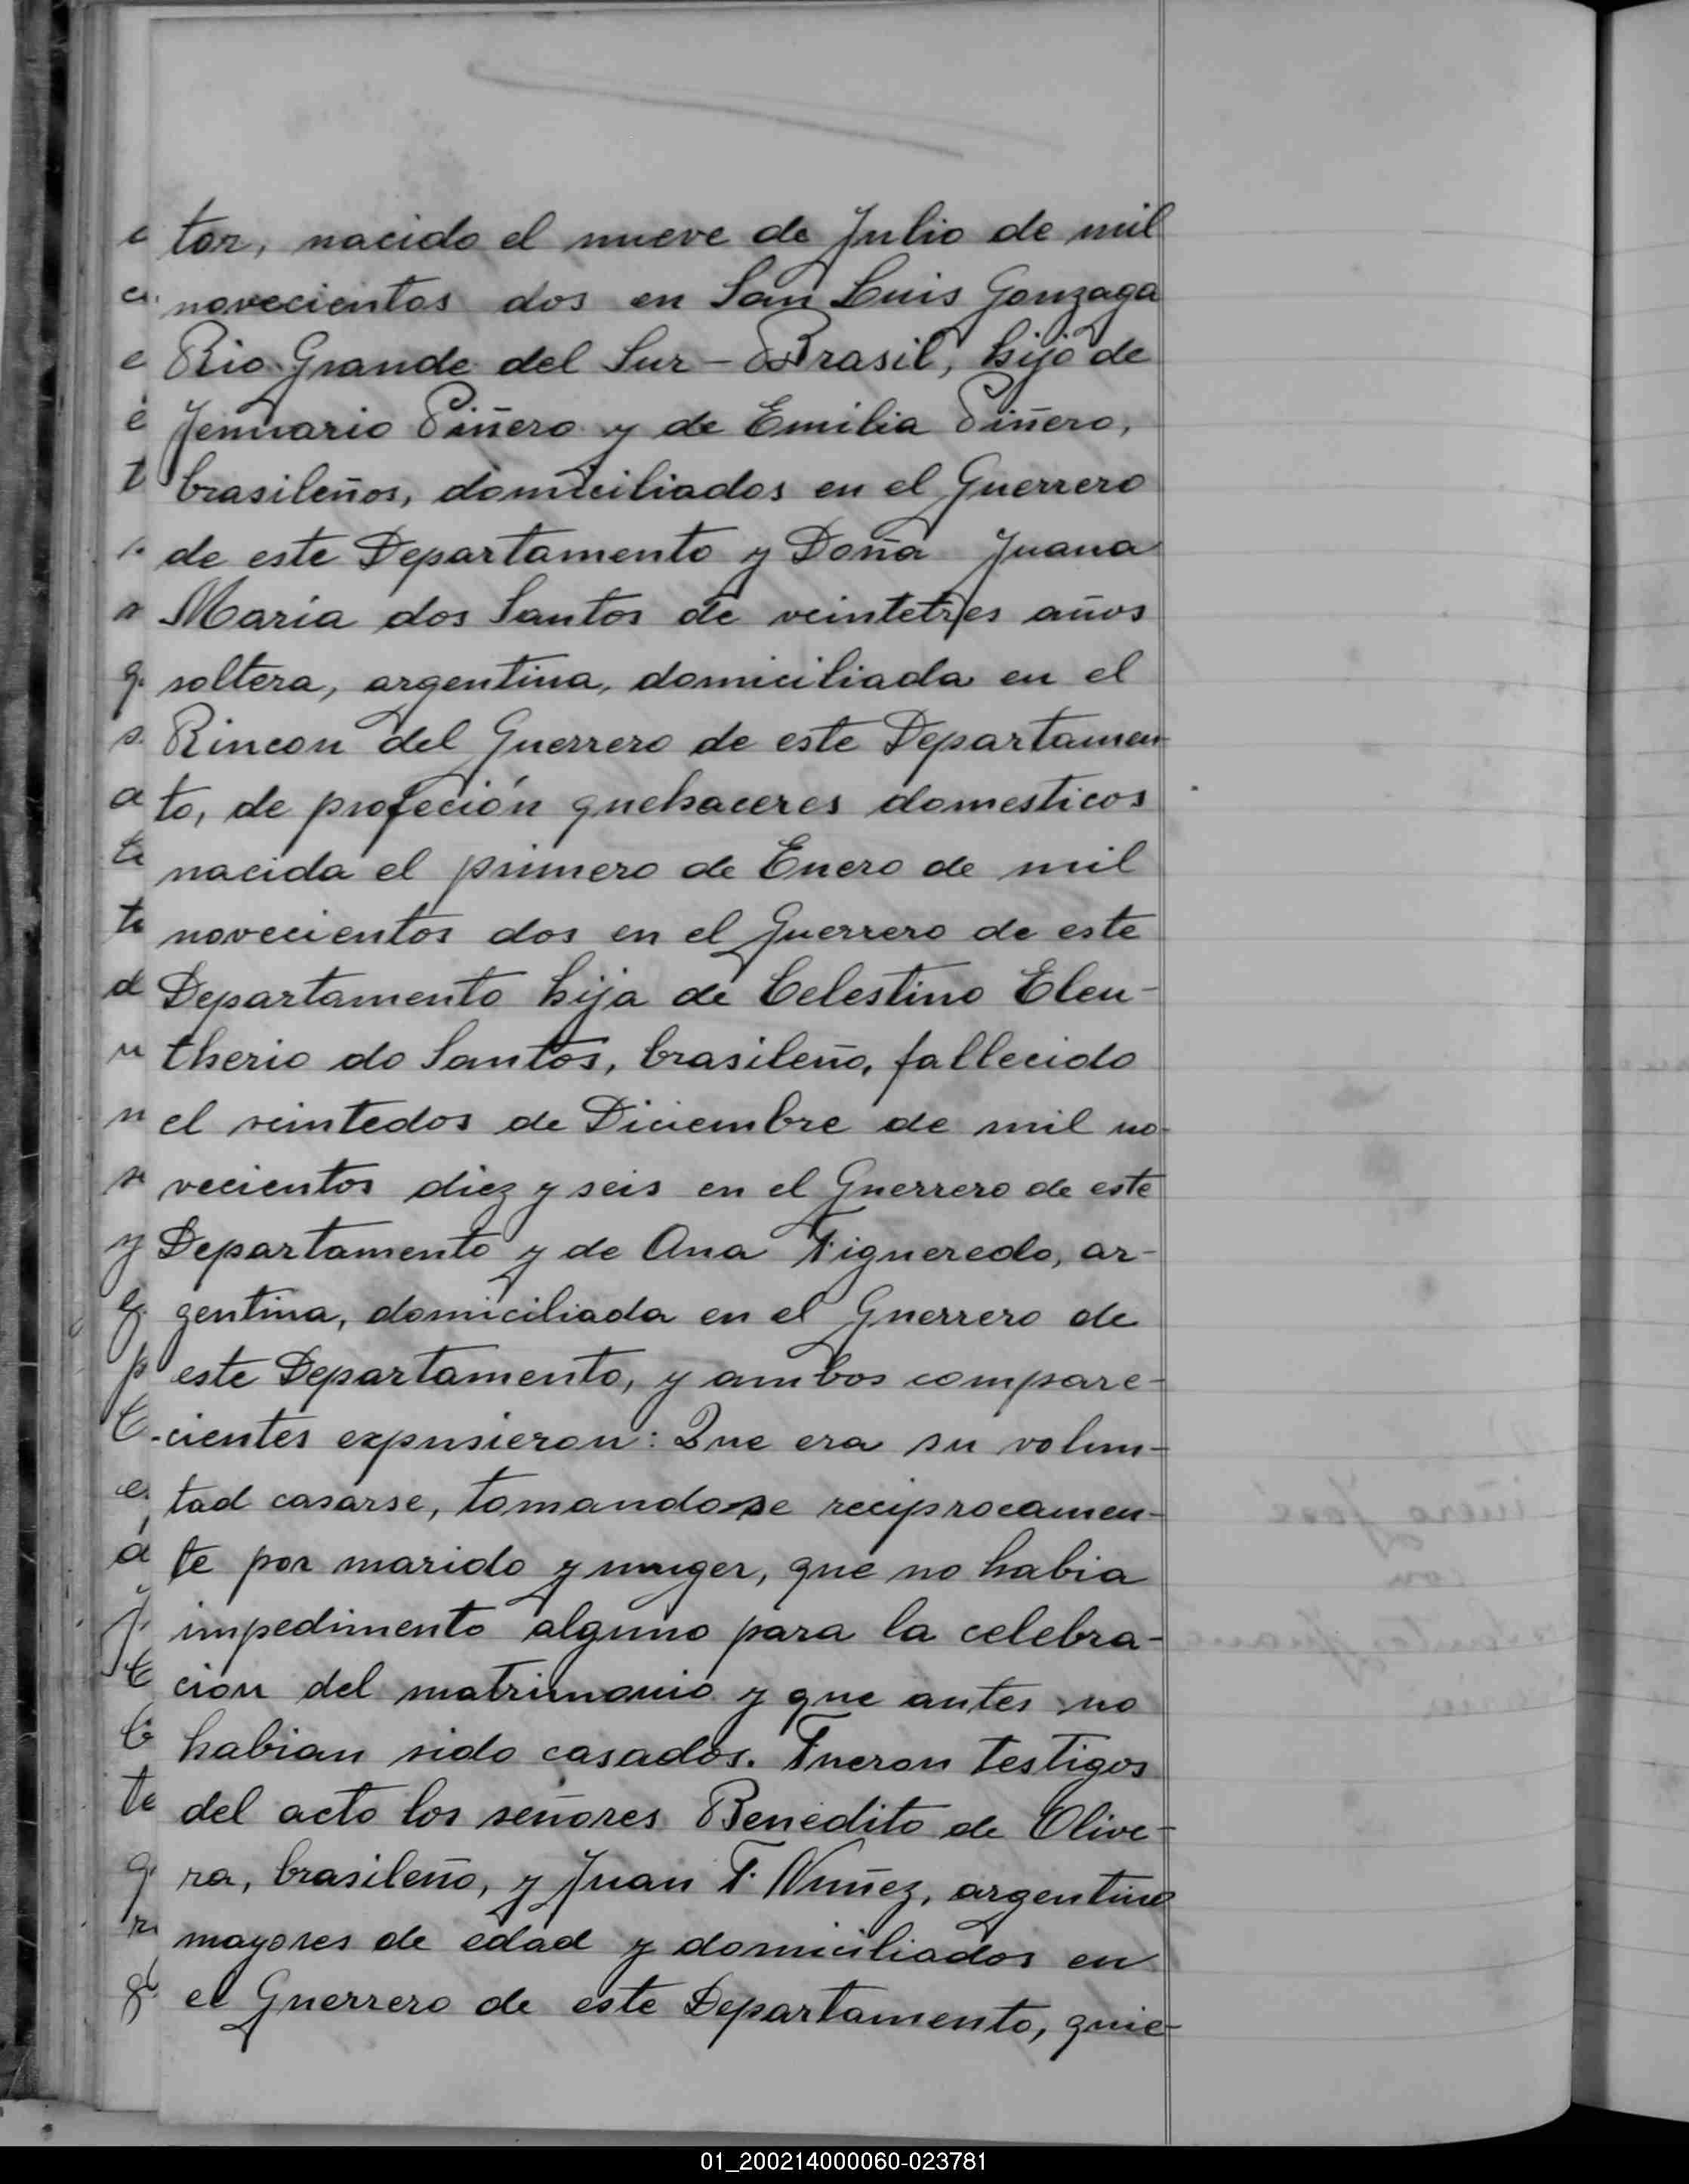 tor, nacido el nueve de Julio de mil
novecientos dos en San Luis Gonzaga
Rio Grande del Sur - Brasil, hijo de
Jenuario Piñero y de Emilia Piñero,
brasileños, domiciliados en el Guerrero
de este Departamento y Doña Juana
Maria dos Santos de veintetres años
soltera, argentina, domiciliada en el
Rincon del Guerrero de este Departamen-
to, de profeción quehaceres domesticos
nacida el primero de Enero de mil
novecientos dos en el Guerrero de este
Departamento hija de Celestino Eleu-
therio do Santos, brasileño, fallecido
el veintedos de Diciembre de mil no-
vecientos diez y seis en el Guerrero de este
Departamento y de Ana Figueredo, ar-
gentina, domiciliada en el Guerrero de
este Departamento, y ambos compare-
-cientes expusieron: Que era su volun-
tad casarse, tomandose reciprocamen-
te por marido y muger, que no habia
impedimento alguno para la celebra-
cion del matrimonio y que antes no
habian sido casados. Fueron testigos
del acto los señores Benedito de Olive-
ra, brasileño, y Juan F. Nuñez, argentino
mayores de edad y domiciliados en
el Guerrero de este Departamento, quie-
01_200214000060-023781